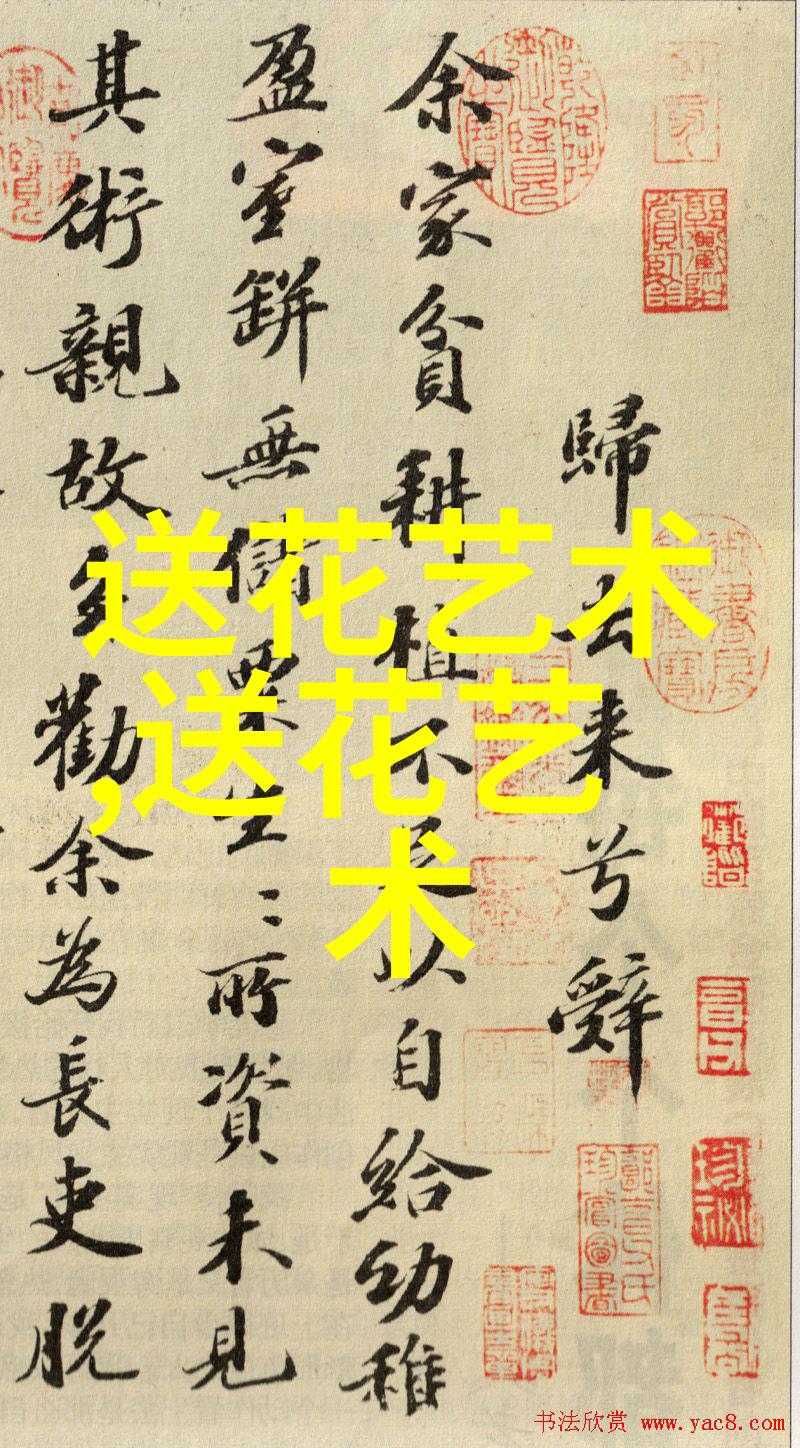 送花艺术
,送花艺
术
歸去来兮辞
余家貧耕植不足以自給幼稚
盈室缾無儲粟生〻所資未見
其術親故多勸余為長吏脱
书法欣赏 www.yac8.com